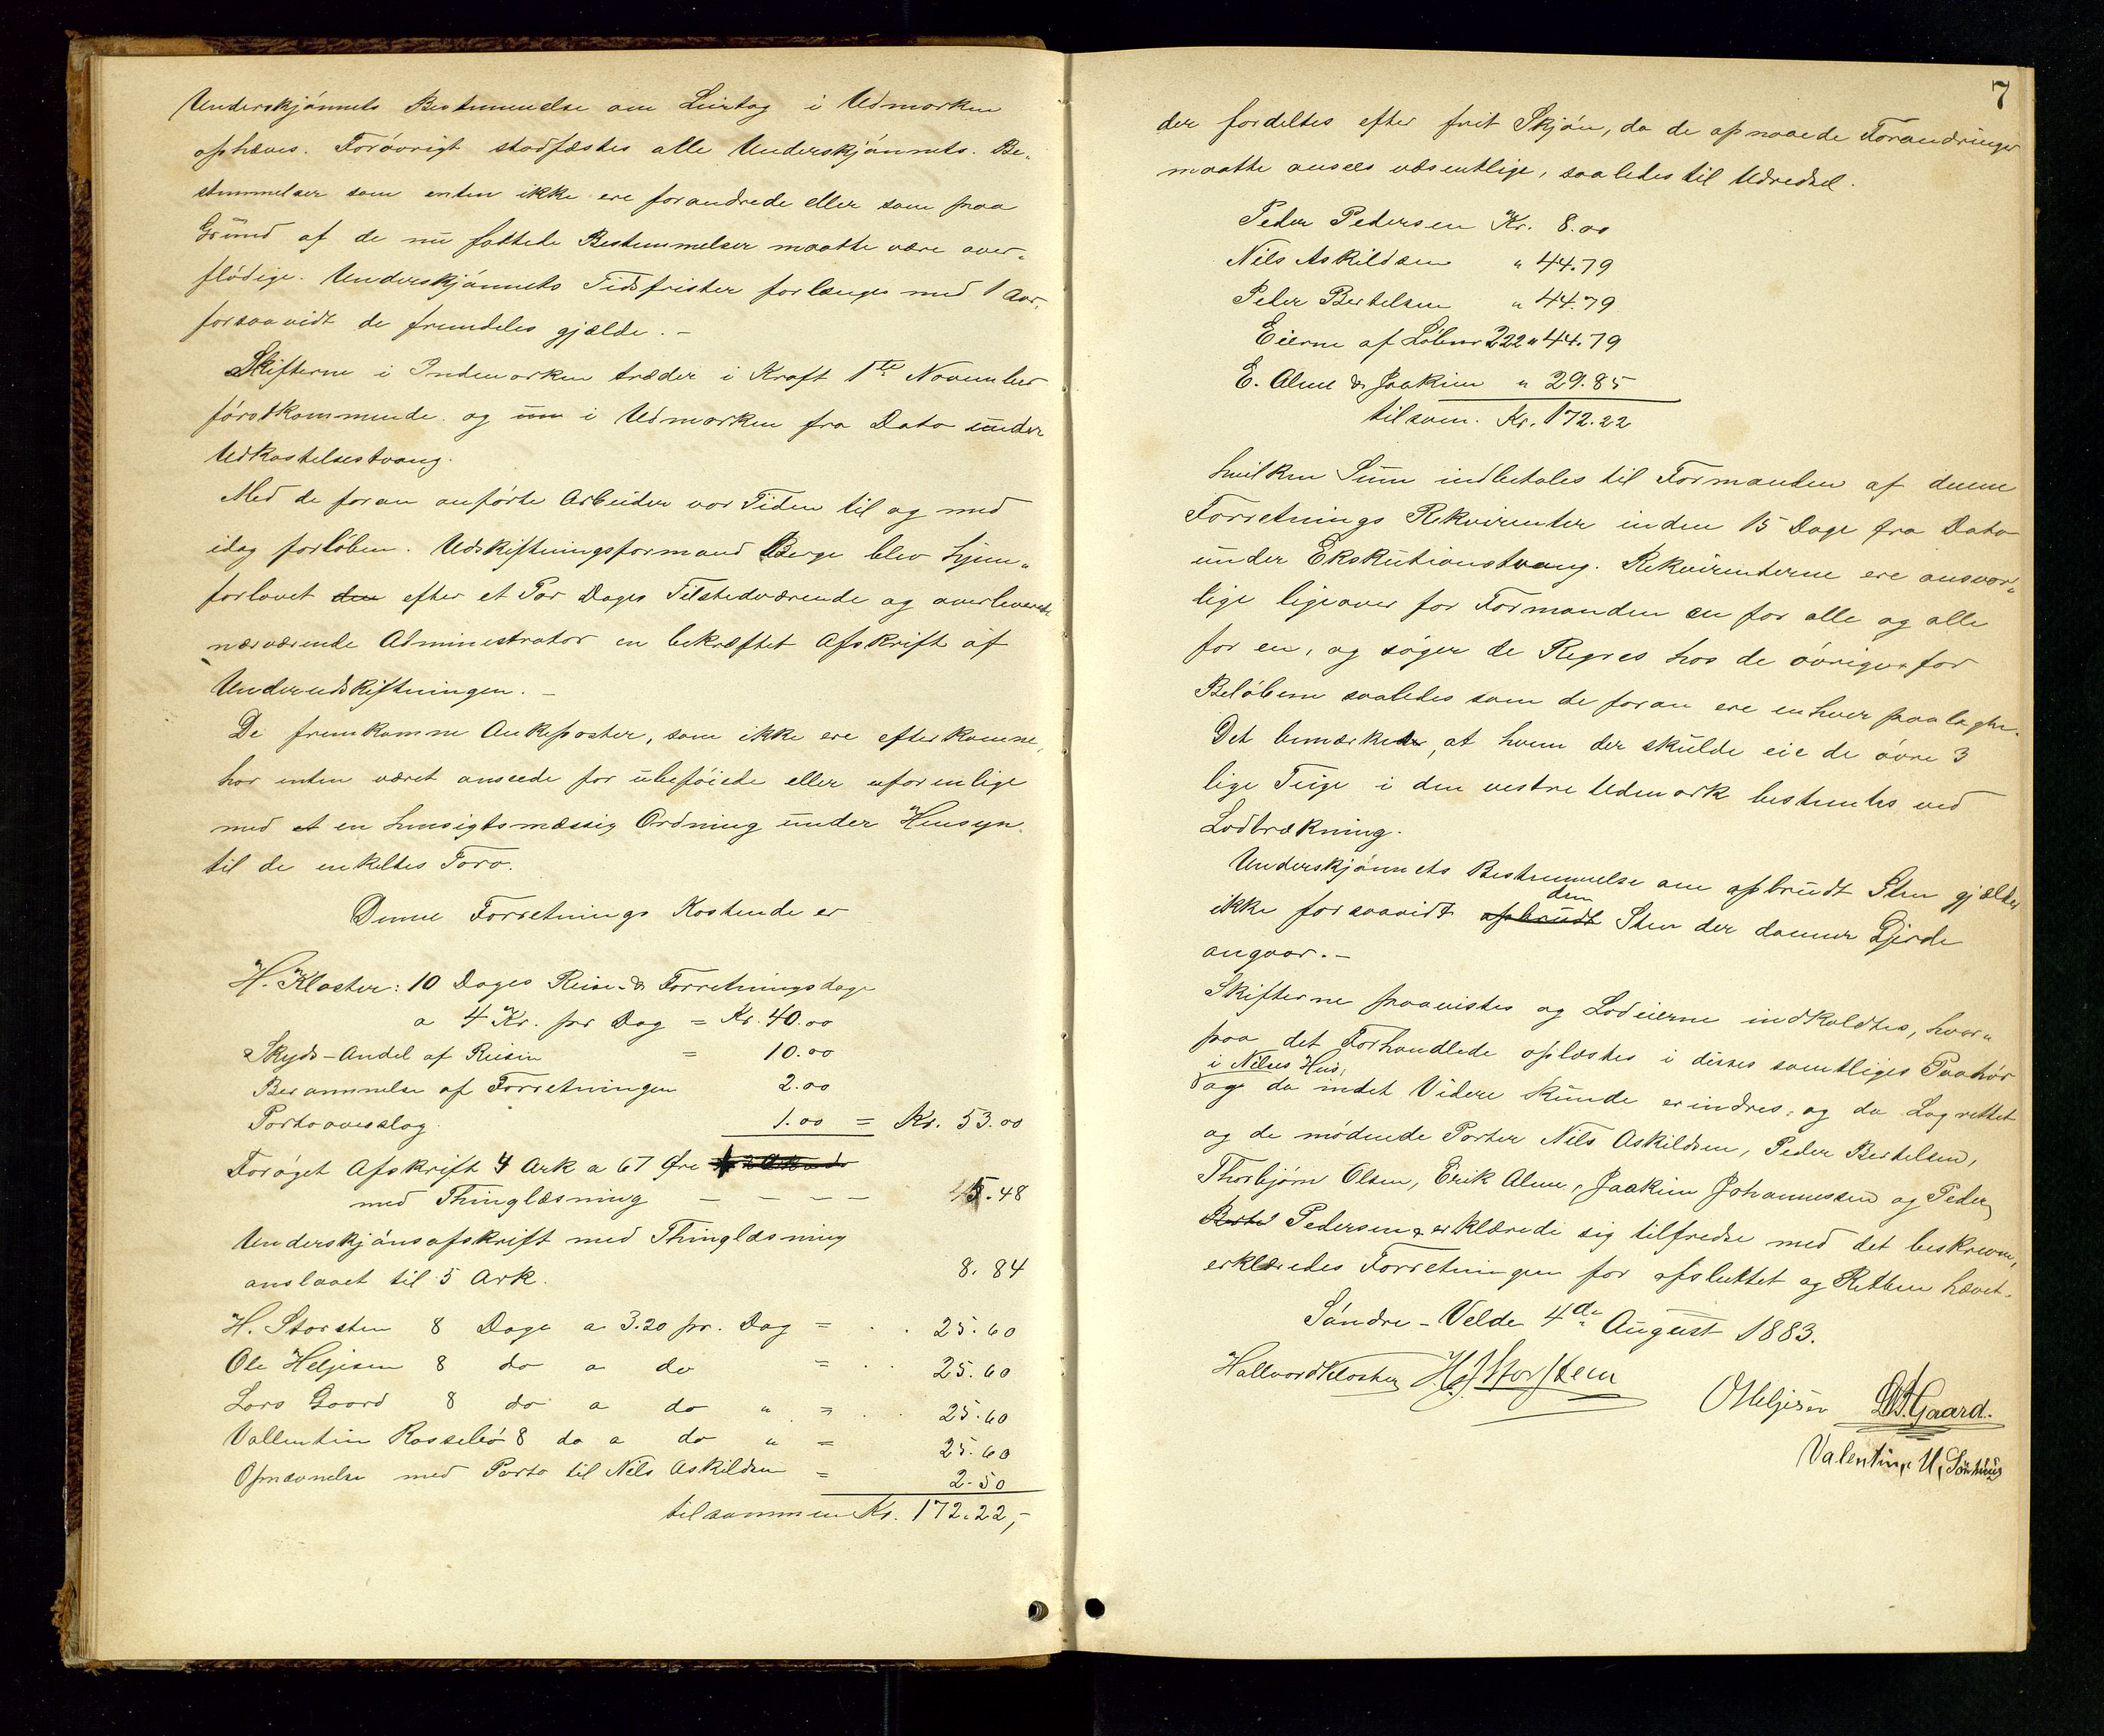 Underskjønnets Bestemmelse om Leirtag i Udmarken
ophæves. Forøvrigt stadfæstes alle Underskjønnets Be-
stemmelser som enten ikke ere forandrede eller som paa
Grund af de nu fattede Bestemmelser maatte være over-
flødige. Underskjønnets Tidsfrister forlænges med 1 Aar,
forsaavidt de fremdeles gjælde. -
Skifterne i Indmarken træder i Kraft 1ste November
førstkommende og i Udmarken fra Dato under
Udkastelsestvang.
Med de foran anførte Arbeider var Tiden til og med
idag forløben. Udskiftningsformand Berge blev hjem-
forlovet den efter et Par Dages Tilstedværende og overleverede
nærværende Administrator en bekræftet Afskrift af
Underudskiftningen. -
De fremkomne Ankeposter, som ikke ere efterkomne,
har enten været anseede for ubeføiede eller uforenlige
med et en hensigtsmæssig Ordning under Hensyn
til de enkeltes Tarv.
Denne Forretnings Kostende er
H. Kloster: 10 Dages Reise- & Forretningsdage
a 4 Kr. pr Dag = Kr. 40.00
Skyds-Andel af Reisen = 10.00
Berammelse af Forretningen 2.00
Portooverslag 1.00 = Kr. 53.00
Forøget Afskrift 4 Ark a 67 Øre
med Thinglæsning - - - - 5.48
Underskjønsafskrift med Thinglæsning
anslaaet til 5 Ark. 8.84
H. Storsten 8 Dage a 3.20 pr. Dag = . . 25.60
Ole Heljesen 8 do a do = . . 25.60
Lars Gaard 8 do a do " = . . 25.60
Vallentin Rossebø 8 do a do " = 25.60
Opnævnelse med Porto til Nils Askildsen = 2.50
tilsammen Kr. 172.22,-
7
der fordeltes efter frit Skjøn, da de opnaaede Forandringer
maatte ansees uvæsentlige, saaledes til Udredsel.
Peder Pedersen Kr. 8.00
Nils Askildsen " 44.79
Peder Bertelsen " 44.79
Eierne af Løbenr 222 " 44.79
E. Alme & Joakim " 29.85
tilsam. Kr. 172.22
hvilken Sum indbetales til Formanden af denne
Forretnings Rekvirenter inden 15 Dage fra Dato
under Eksekutionstvang. Rekvirenterne ere ansvar-
lige ligeover for Formanden en for alle og alle
for en, og søger de Regres hos de øvrige for
Beløbene saaledes som de foran ere enhver paalagte.
Det bemærkedes, at hvem der skulde eie de øvre 3
lige Teige i den vestre Udmark bestemtes ved
Lodtrækning.
Underskjønnets Bestemmelse om opbrudt Sten gjælder
den
ikke forsaavidt opbrudt Sten der danner Gjerde
angaar. -
Skifterne paavistes og Lodeierne indkaldtes, hvor-
paa det Forhandlede oplæstes i disses samtliges Paahør
i Nilses Hus,
og da intet Videre kunde erindres, og da Lagrettet
og de mødende Parter Nils Askildsen, Peder Bertelsen,
Thorbjørn Olsen, Erik Alme, Joakim Johannessen og Peder
Bertel Pedersen erklærede sig tilfredse med det beskrevne,
erklæredes Forretningen for afsluttet og Retten hævet.
Søndre-Velde 4de August 1883.
Hallvard Kloster H. J. Storstein
O Heljesen L. B. Gaard.
Valentin